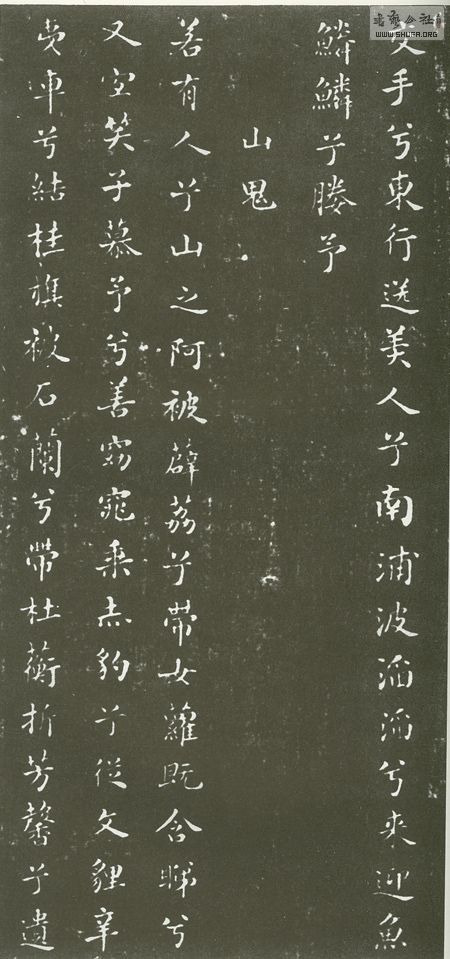 交手兮東行送美人兮南浦波滔滔兮來迎魚
鱗鱗兮媵予
山鬼
若有人兮山之阿被薜荔兮帶女蘿既含睇兮
又宜笑子慕予兮善窈窕乘赤豹兮從文貍辛
夷車兮結桂旗被石蘭兮帶杜蘅折芳馨兮遺
書藝公社
WWW.SHUFA.ORG